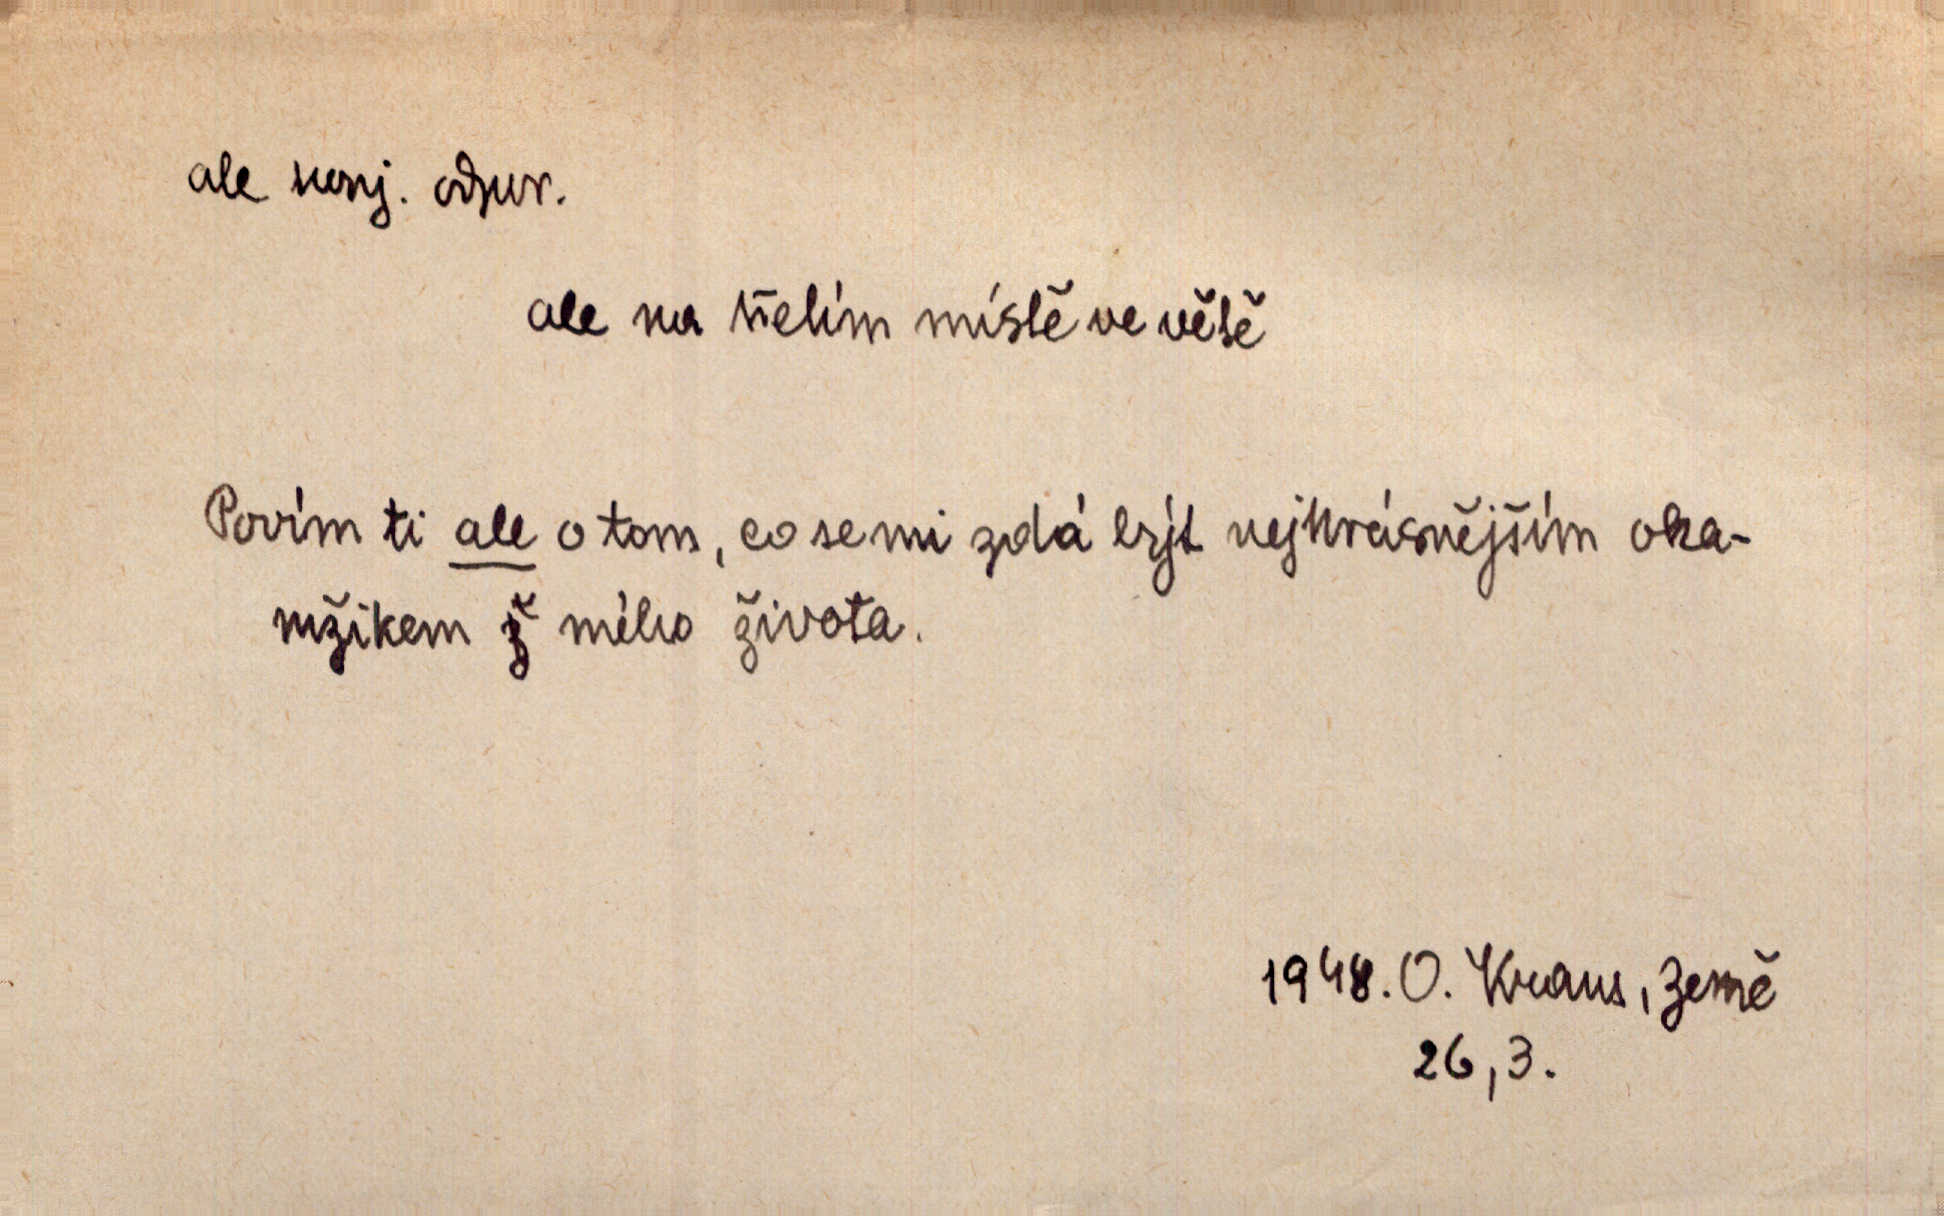 ale konj. odpor.
ale na třetím místě ve větě
Povím ti ale o tom, co se mi zdá být nejkrásnějším oka-
mžikem mého života.
1948. O. Kraus, Země
26, 3.